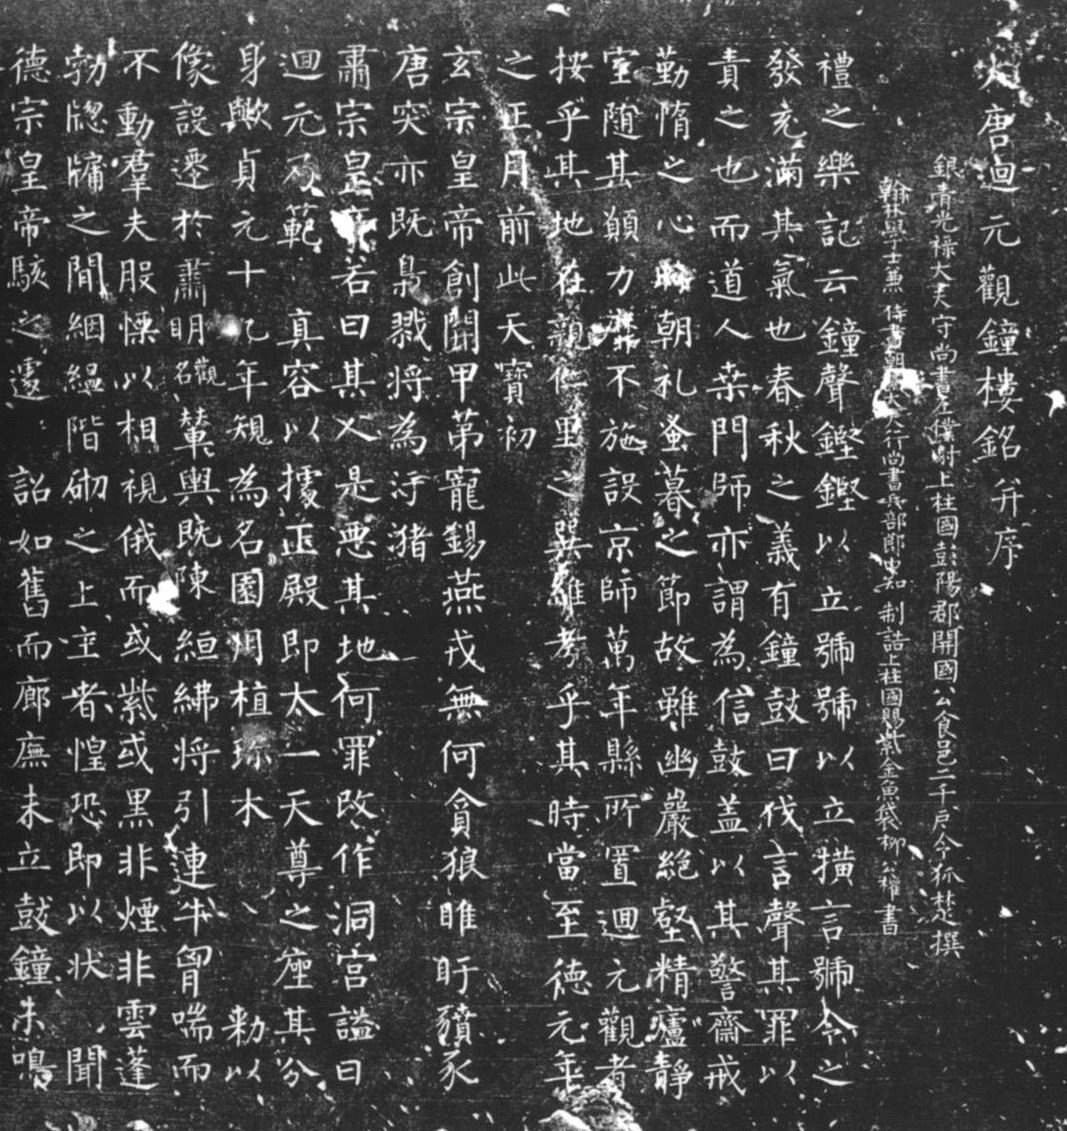 大唐迴元觀鐘樓銘并序
銀青光祿大夫守尚書左僕射上柱國彭陽郡開國公食邑二千戶令狐楚撰
翰林學士兼侍書朝大夫行尚書兵部郎中知制誥上柱國賜紫金魚袋柳公權書
禮之樂記云鐘聲鏗鏗以立號號以立橫言號令之
發充滿其氣也春秋之義有鐘鼓曰伐言聲其罪以
責之也而道人桒門師亦謂為信鼓盖以其警齋戒
勤惰之心時朝礼蚤暮之節故雖幽巖絕壑精廬靜
室隨其願力靡不施設京師萬年縣所置迴元觀者
按乎其地在親仁里之巽維考乎其時當至德元年
之正月前此天寶初
玄宗皇帝創開甲第寵錫燕戎無何貪狼睢盱豶豕
唐突亦既梟戮將為洿瀦
肅宗皇帝若曰其人是惡其地何罪改作洞宮謚曰
迴元乃範真容以據正殿即太一天尊之座其分
身歟貞元十九年規為名園用植珎木敕以
像設遷於肅明觀名輦輿既陳絙紼將引連牛胷喘而
不動羣夫股慄以相視俄而或紫或黑非煙非雲蓬
勃窗牖之間絪縕階砌之上主者惶恐即以状聞
德宗皇帝駭之遽詔如舊而廊廡未立鼓鐘未鳴